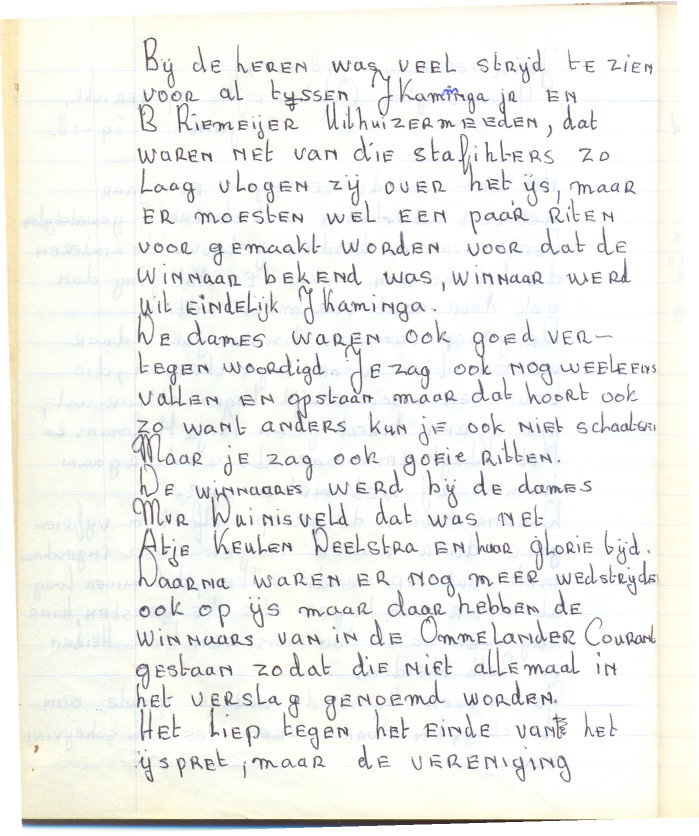 Bij de heren was veel strijd te zien
voor al tyssen J Kaminga jr en
B Riemeijer Uithuizermeeden, dat
waren net van die stafihters zo
laag vlogen zij over het ijs, maar
er moesten wel een paar riten
voor gemaakt worden voor dat de
winnaar bekend was, winnaar werd
uit eindelijk J Kaminga.
De dames waren ook goed ver-
tegen woordigd. Je zag ook nog weeleens
vallen en opstaan maar dat hoort ook
zo want anders kun je ook niet schaatsen
Maar je zag ook goeie ritten.
De winnares werd bij de dames
Mvr Duinisveld dat was net
Atje Keulen Deelstra en haar glorie tijd.
Daarna waren er nog meer wedstrijde
ook op ijs maar daar hebben de
winnaars van in de Ommelander Courant
gestaan zodat die niet allemaal in
het verslag genoemd worden.
Het liep tegen het einde van het
ijspret, maar de vereniging